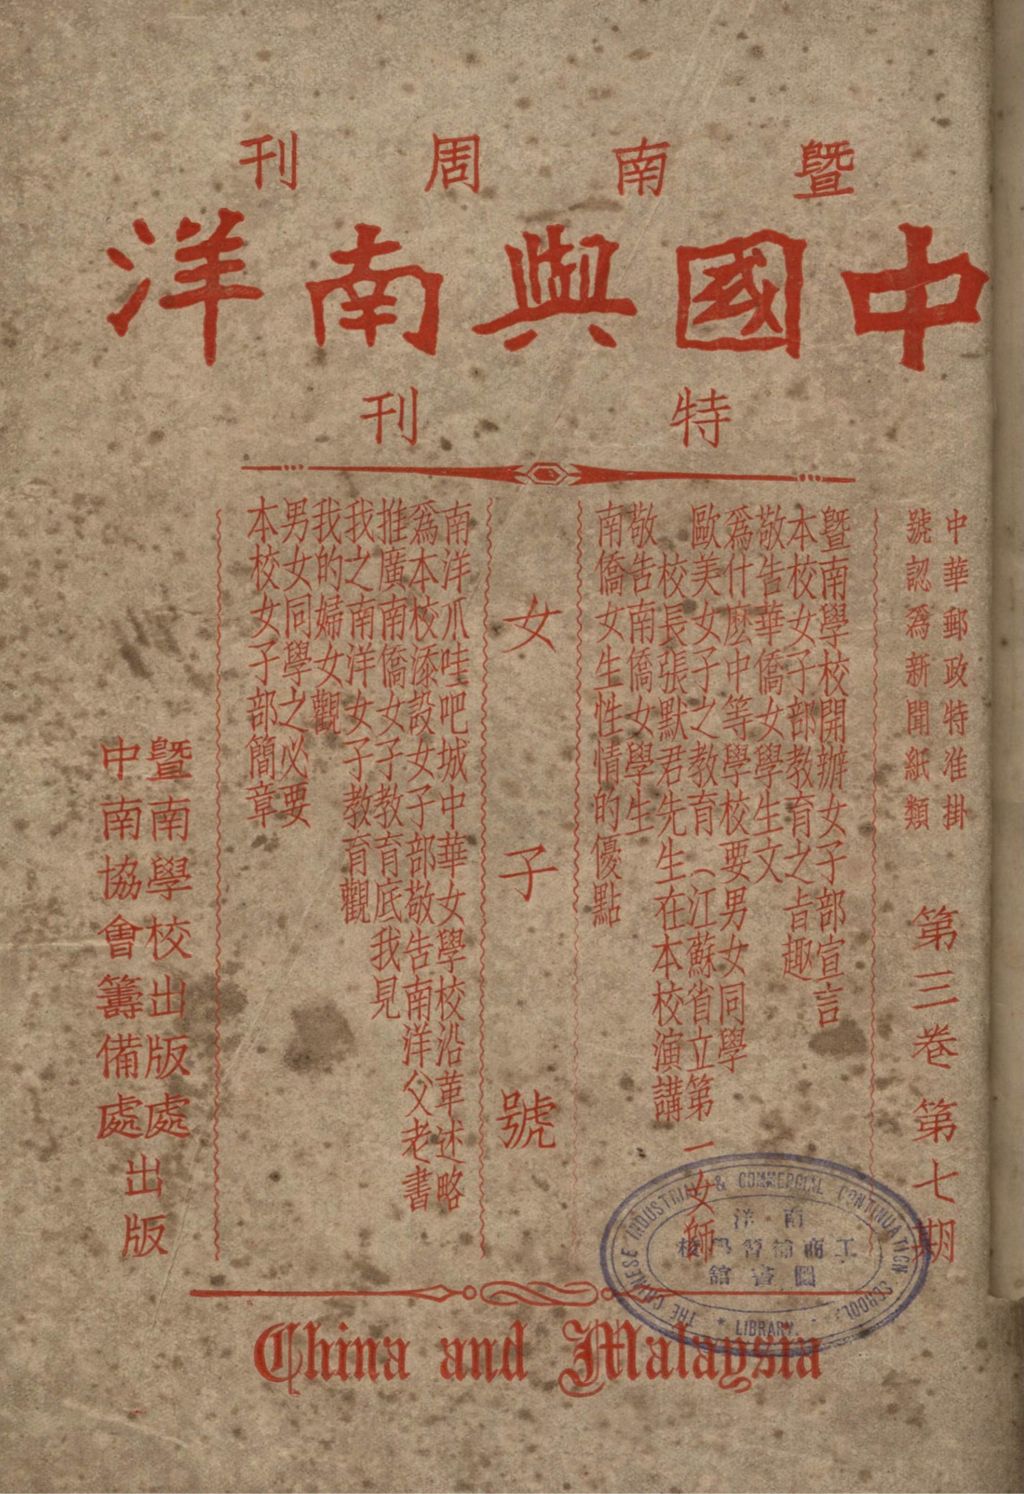 暨南周刊
中國與南洋
特刊
中華郵政特准掛
號認為新聞紙類
第三卷第七期
暨南學校開辦女子部宣言
本校女子部教育之旨趣
敬告華僑女學生文
為什麽中等學校要男女同學
歐美女子之教育（江蘇省立第一女師
校長張默君先生在本校演講
敬告南僑女學生
南僑女生性情的優點
女子號
南洋爪哇吧城中華女學校沿革述略
為本校添設女子部敬告南洋父老書
推廣南僑女子教育底我見
我之南洋女子教育觀
我的婦女觀
男女同學之必要
本校女子部簡章
暨南學校出版處
中南協會籌備處
出版
China and Malaysia
THE CHINESE INDUSTRIAL & COMMERCIAL CONTINUATION SCHOOL
南洋
工商補習學校
圖書舘
LIBRARY.